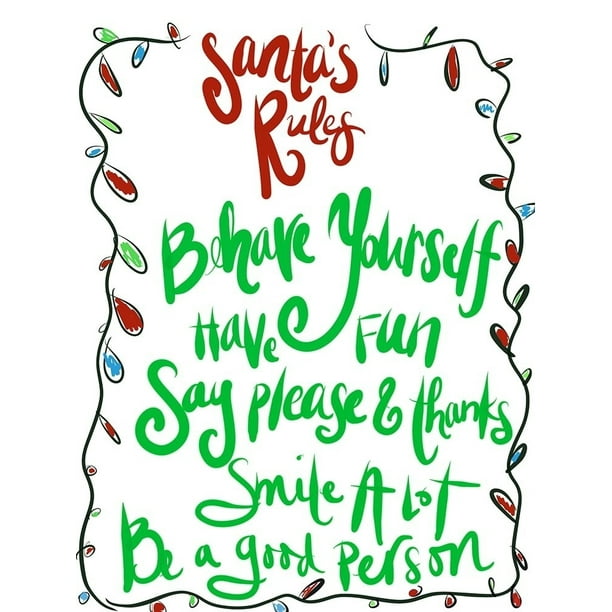 Santa's
Rules
Behave Yourself
Have Fun
Say please & thanks
Smile A Lot
Be a good person